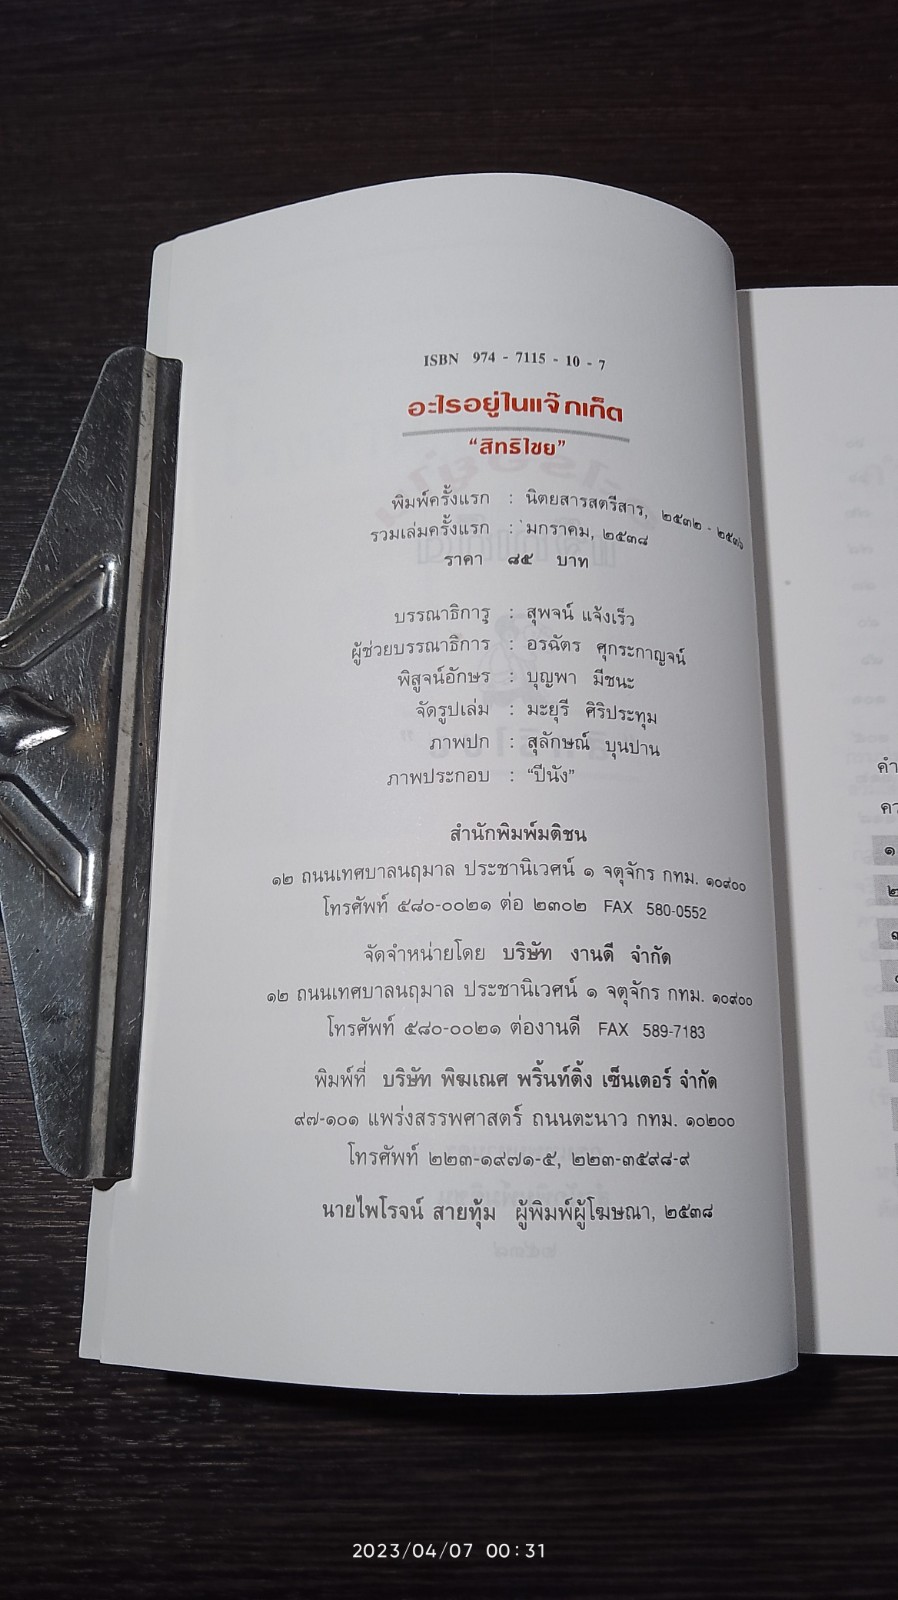 ISBN 974 - 7115 - 10 - 7
อะไรอยู่ในแจ๊กเก็ต
“สิทธิไชย”
พิมพ์ครั้งแรก : นิตยสารสตรีสาร, ๒๕๓๒ - ๒๕๓๖
รวมเล่มครั้งแรก : มกราคม, ๒๕๓๘
ราคา ๘๕ บาท
บรรณาธิการ : สุพจน์ แจ้งเร็ว
ผู้ช่วยบรรณาธิการ : อรฉัตร ศุกระกาญจน์
พิสูจน์อักษร : บุญพา มีชนะ
จัดรูปเล่ม : มะยุรี ศิริประทุม
ภาพปก : สุลักษณ์ บุนปาน
ภาพประกอบ : “ปีนัง”
สำนักพิมพ์มติชน
๑๒ ถนนเทศบาลนฤมาล ประชานิเวศน์ ๑ จตุจักร กทม. ๑๐๙๐๐
โทรศัพท์ ๕๘๐-๐๐๒๑ ต่อ ๒๓๐๒ FAX 580-0552
จัดจำหน่ายโดย บริษัท งานดี จำกัด
๑๒ ถนนเทศบาลนฤมาล ประชานิเวศน์ ๑ จตุจักร กทม. ๑๐๙๐๐
โทรศัพท์ ๕๘๐-๐๐๒๑ ต่องานดี FAX 589-7183
พิมพ์ที่ บริษัท พิฆเณศ พริ้นท์ติ้ง เซ็นเตอร์ จำกัด
๙๗-๑๐๑ แพร่งสรรพศาสตร์ ถนนตะนาว กทม. ๑๐๒๐๐
โทรศัพท์ ๒๒๓-๑๙๗๑-๕, ๒๒๓-๓๕๙๘-๙
นายไพโรจน์ สายทุ้ม ผู้พิมพ์ผู้โฆษณา, ๒๕๓๘
๑
๒
๓
2023/04/07 00:31